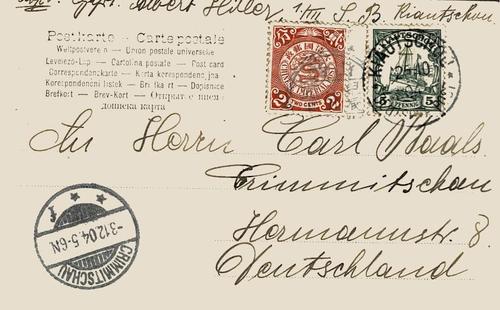 Albert Hiller, 1/VII S. B. Kiautschau
Postkarte - Carte postale
Weltpostverein — Union postale universelle
Levelező-Lap — Cartolina postale — Post card
Correspondenzkarte — Karta korespondencyjna
Korespondenční lístek — Brefkaart — Dopisnice
Brefkort — Brev-Kort — Открытое письмо
дописна карта
TWO CENTS
2 2
KIAUTSCHOU
5 PFENNIG 5
An Herrn Carl Waals
Crimmitschau
Hermannstr. 8.
Deutschland
-3.12.04.5-6N.
CRIMMITSCHAU